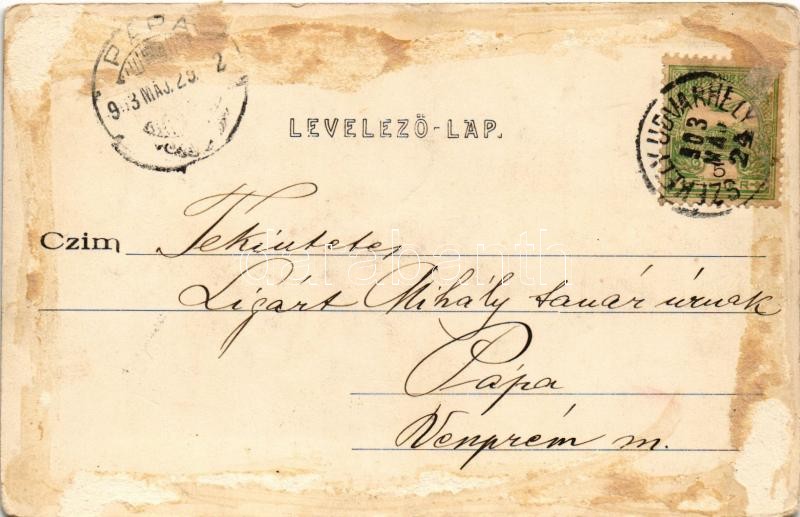 PÁPA
903 MÁJ. 25.
LEVELEZŐ-LAP.
SZÉKELY UDVARHELY
903 MÁJ 24
5
Czim Tekintetes
Ligárt Mihály tanár úrnak
Pápa
Veszprém m.
darabanth